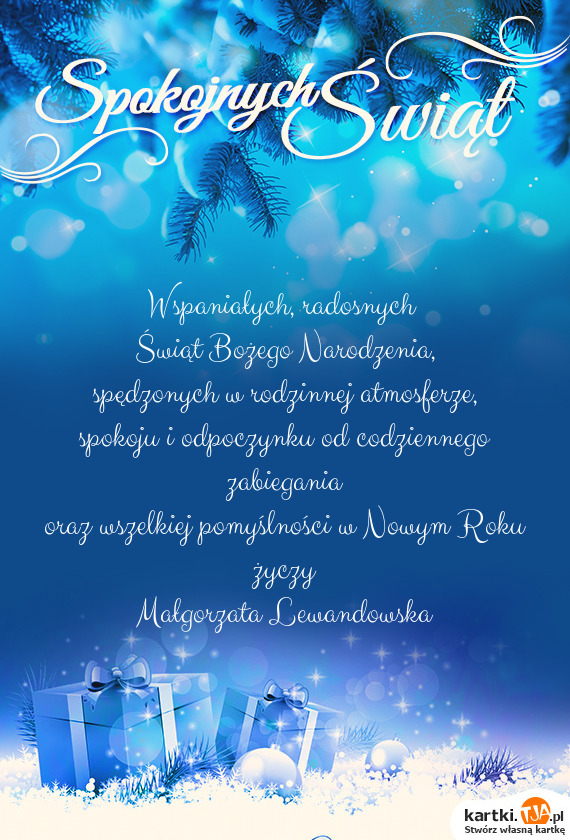 Spokojnych Świąt
Wspaniałych, radosnych
Świąt Bożego Narodzenia,
spędzonych w rodzinnej atmosferze,
spokoju i odpoczynku od codziennego
zabiegania
oraz wszelkiej pomyślności w Nowym Roku
życzy
Małgorzata Lewandowska
kartki.TJA.pl
Stwórz własną kartkę